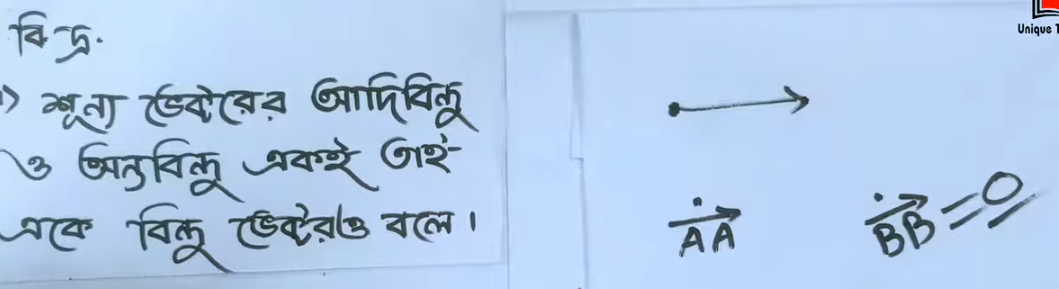 বি দ্র.
১) শূন্য ভেক্টরের আদিবিন্দু
ও অন্তবিন্দু একই তাই
একে বিন্দু ভেক্টরও বলে।
AA
BB = 0
Unique T